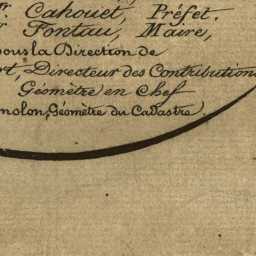 r. Cahouet, Préfet.
r Fontau, Maire,
sous la Direction de
rt, Directeur des Contributions
Géomètre en Chef
nolon, Géomètre du Cadastre.